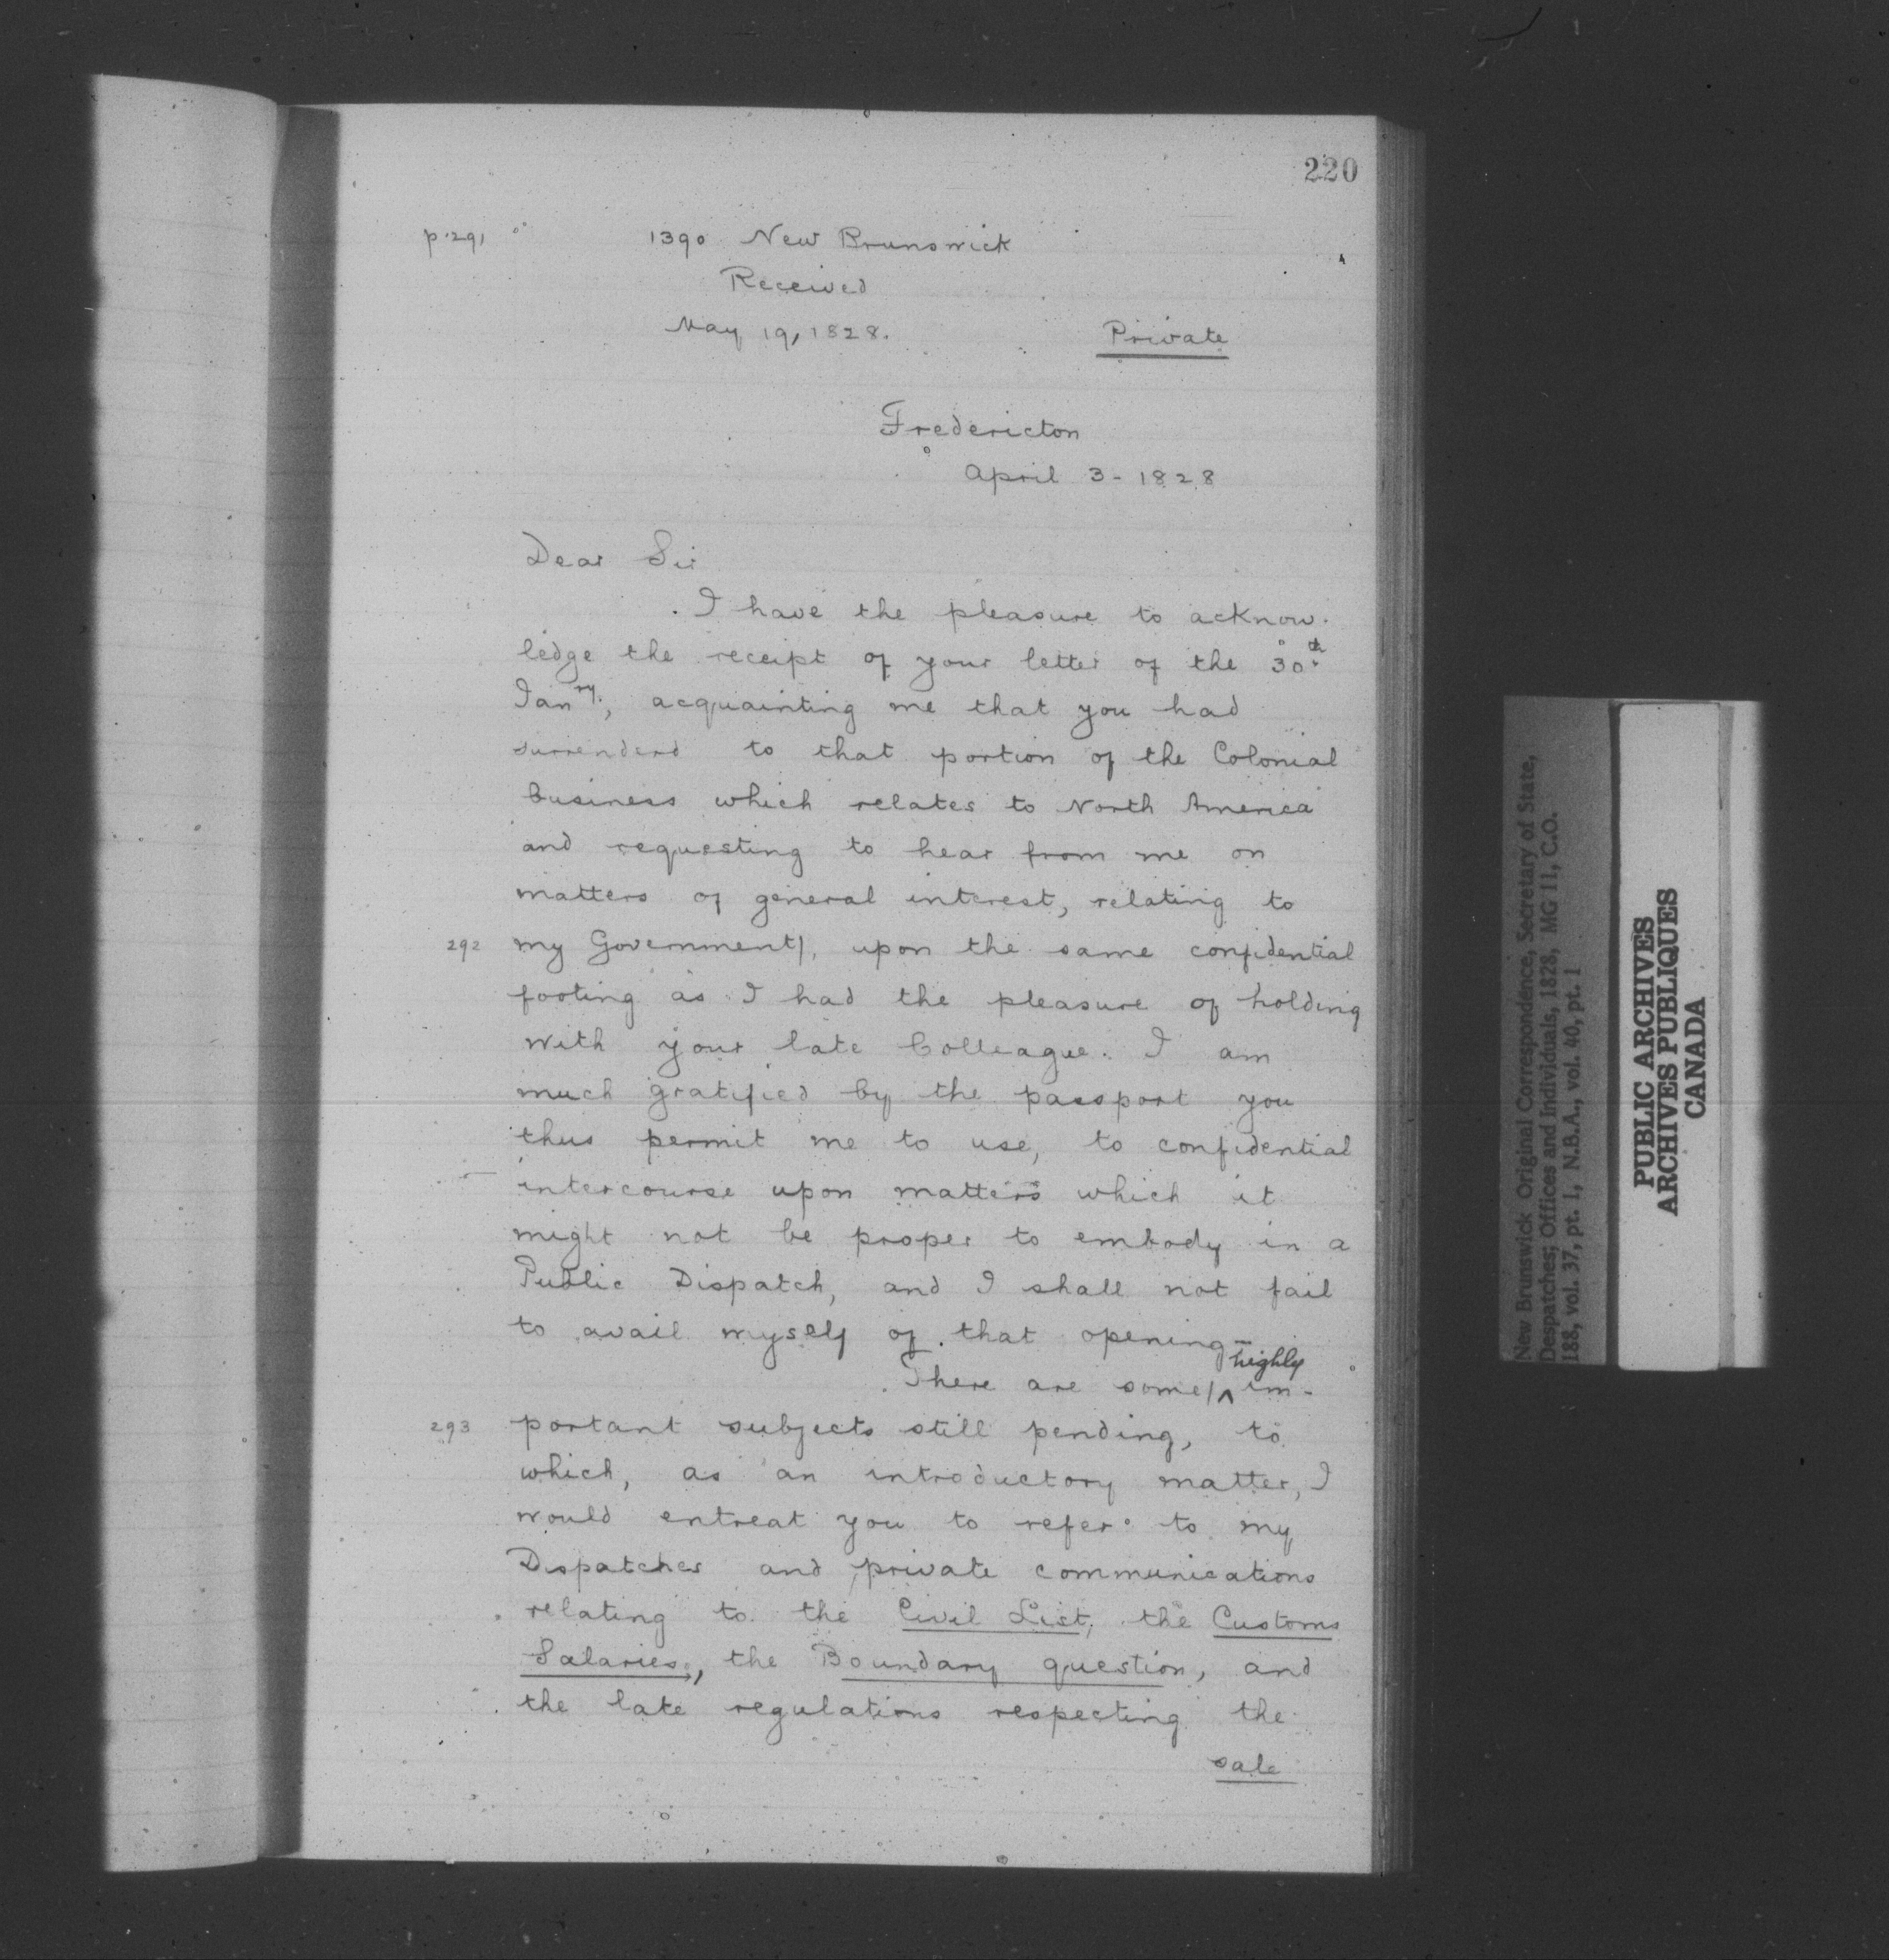 220
p. 291 1390 New Brunswick
Received
May 19, 1828.
Private
Fredericton
April 3 - 1828
Dear Sir
I have the pleasure to acknow-
ledge the receipt of your letter of the 30th
Janry., acquainting me that you had
surrenderd to that portion of the Colonial
business which relates to North America
and requesting to hear from me on
matters of general interest, relating to
292 my Government/, upon the same confidential
footing as I had the pleasure of holding
with your late Colleague. I am
much gratified by the passport you
thus permit me to use, to confidential
intercourse upon matters which it
might not be proper to embody in a
Public Dispatch, and I shall not fail
to avail myself of that opening -
There are some/ ^ highly im-
293 portant subjects still pending, to
which, as an introductory matter, I
would entreat you to refer to my
Dispatches and private communications
relating to the Civil List, the Customs
Salaries, the Boundary question, and
the late regulations respecting the
sale
New Brunswick Original Correspondence, Secretary of State,
Despatches; Offices and Individuals, 1828, MG 11, C.O.
188, vol. 37, pt. 1, N.B.A., vol. 40, pt. 1
PUBLIC ARCHIVES
ARCHIVES PUBLIQUES
CANADA